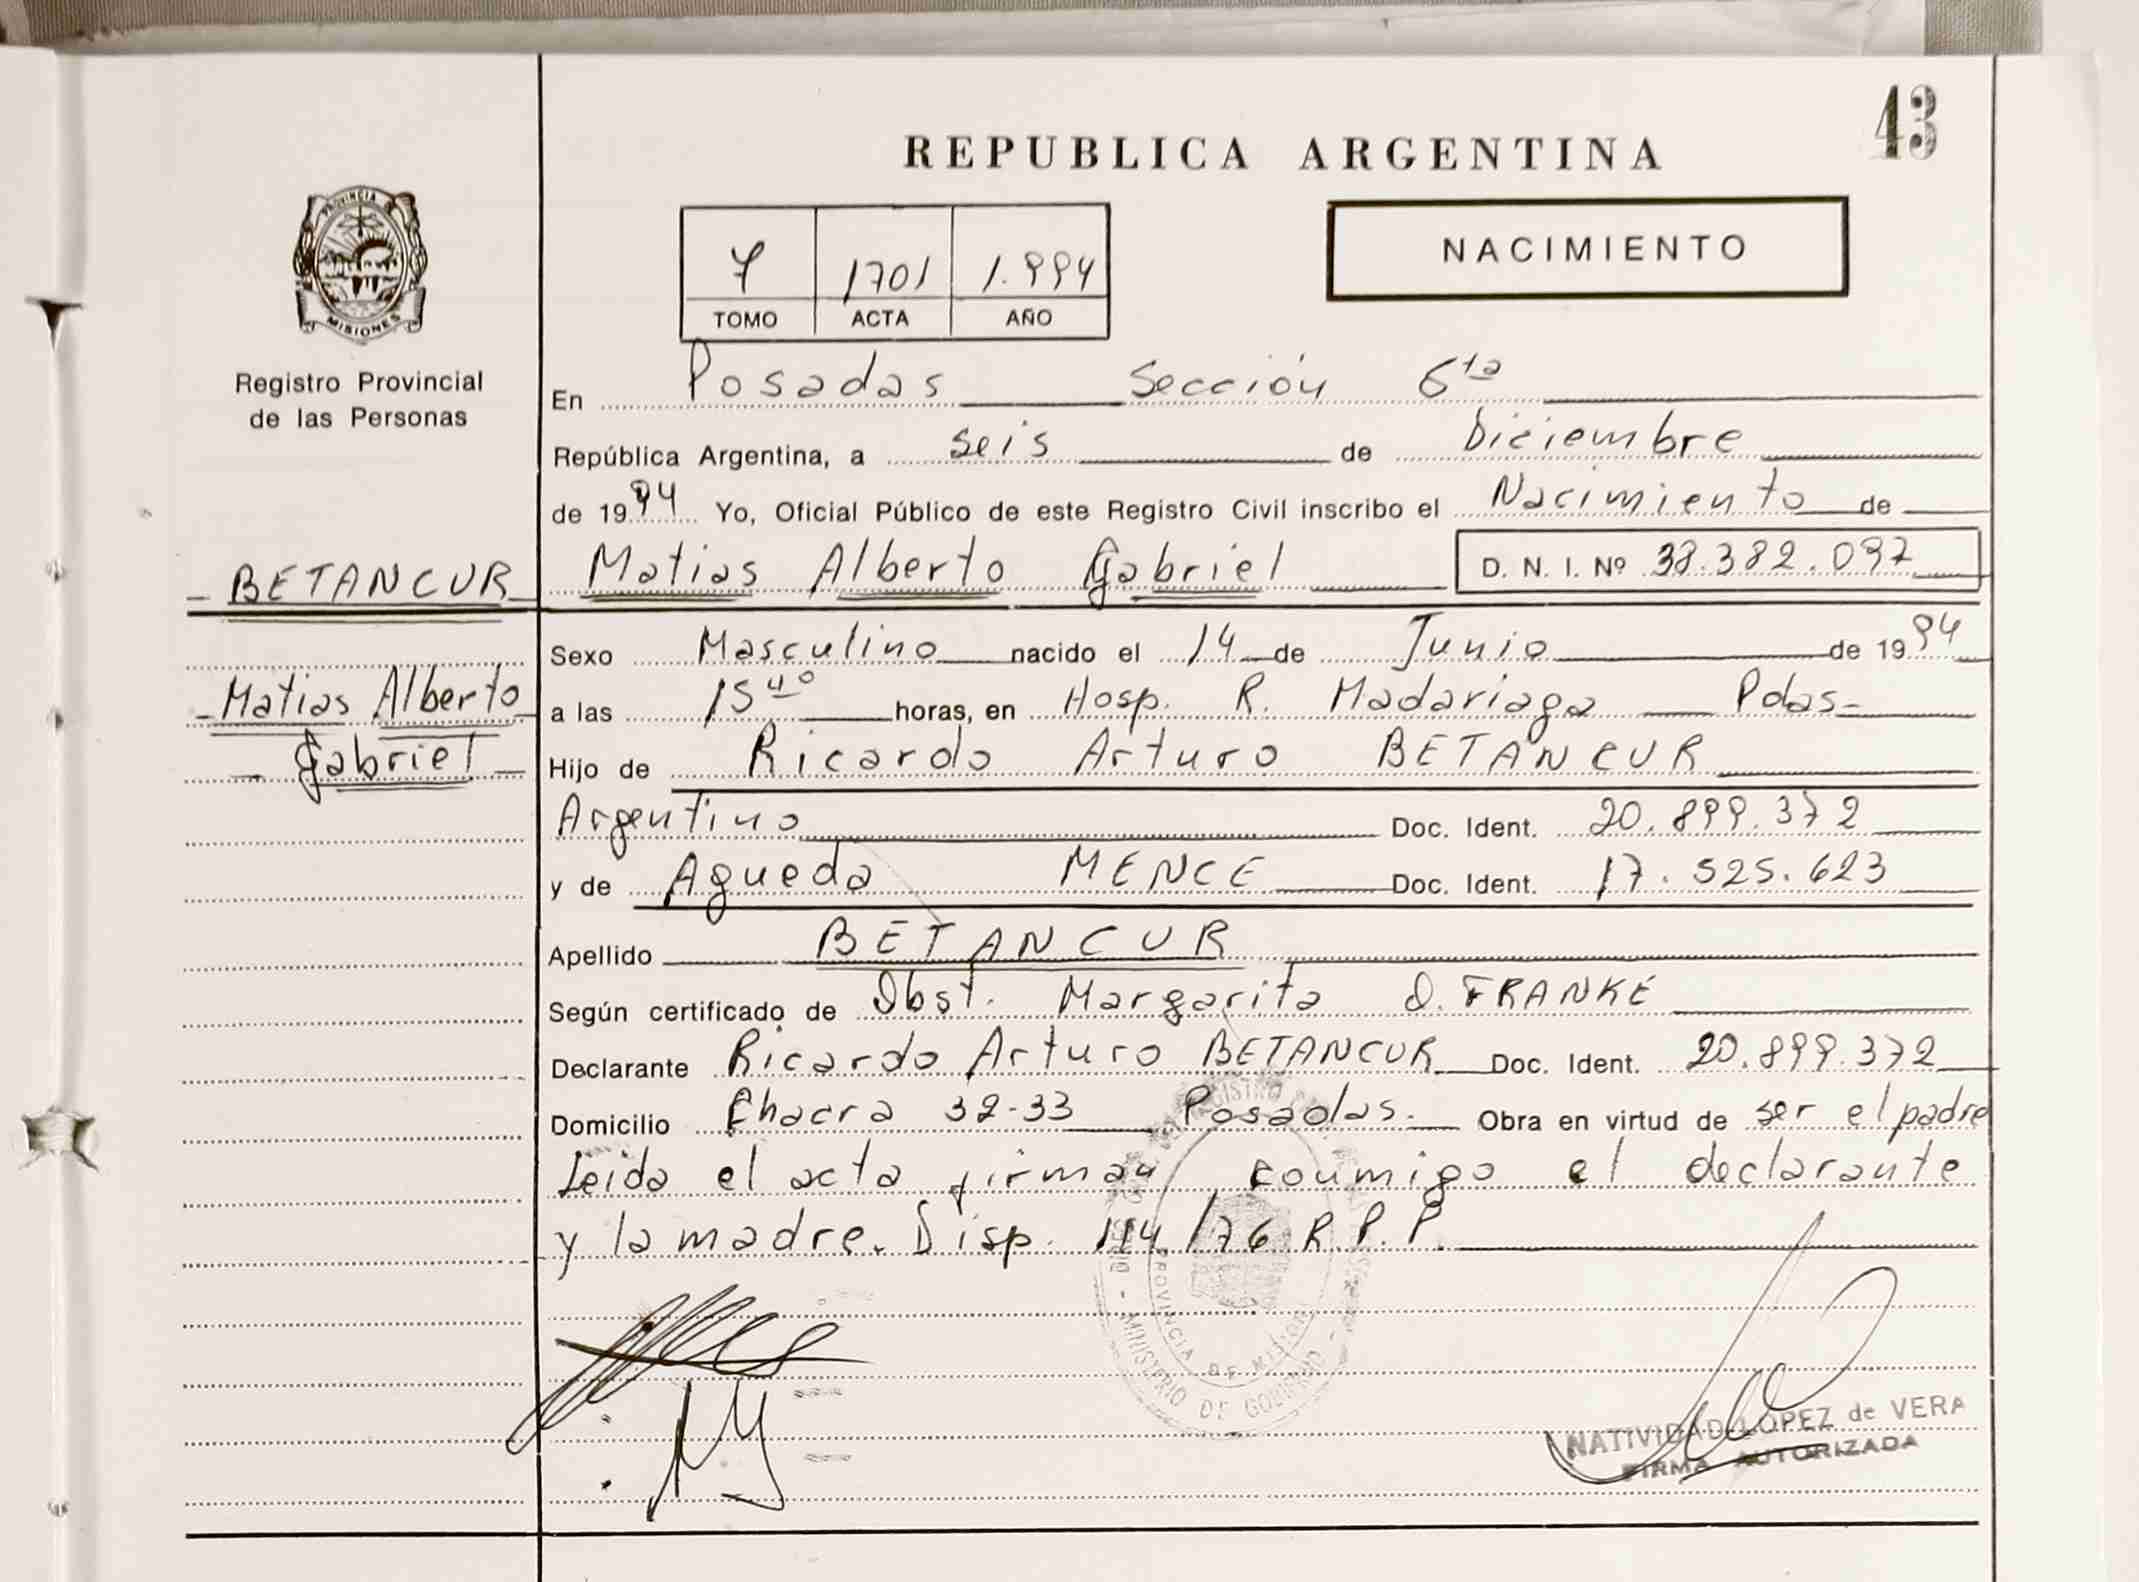 43
REPUBLICA ARGENTINA
NACIMIENTO
7 1701 1.994
TOMO ACTA AÑO
PROVINCIA DE
MISIONES
Registro Provincial
de las Personas
En Posadas Sección 6ta
República Argentina, a seis de Diciembre
de 1994 Yo, Oficial Público de este Registro Civil inscribo el Nacimiento de
BETANCUR Matias Alberto Gabriel D. N. I. Nº 38.382.097
Sexo Masculino nacido el 14 de Junio de 1994
Matias Alberto
Gabriel
a las 15 40 horas, en Hosp. R. Madariaga Pdas
Hijo de Ricardo Arturo BETANCUR
Argentino Doc. Ident. 20.899.372
y de Agueda MENCE Doc. Ident. 17.525.623
Apellido BETANCUR
Según certificado de Obst. Margarita O. FRANKE
Declarante Ricardo Arturo BETANCUR Doc. Ident. 20.899.372
Domicilio Chacra 32-33 Posadas. Obra en virtud de ser el padre
Leida el acta firman conmigo el declarante
y la madre. Disp. 114/76 R.P.P.
PROVINCIA DE MISIONES
MINISTERIO DE GOBIERNO
NATIVIDAD LOPEZ de VERA
FIRMA AUTORIZADA